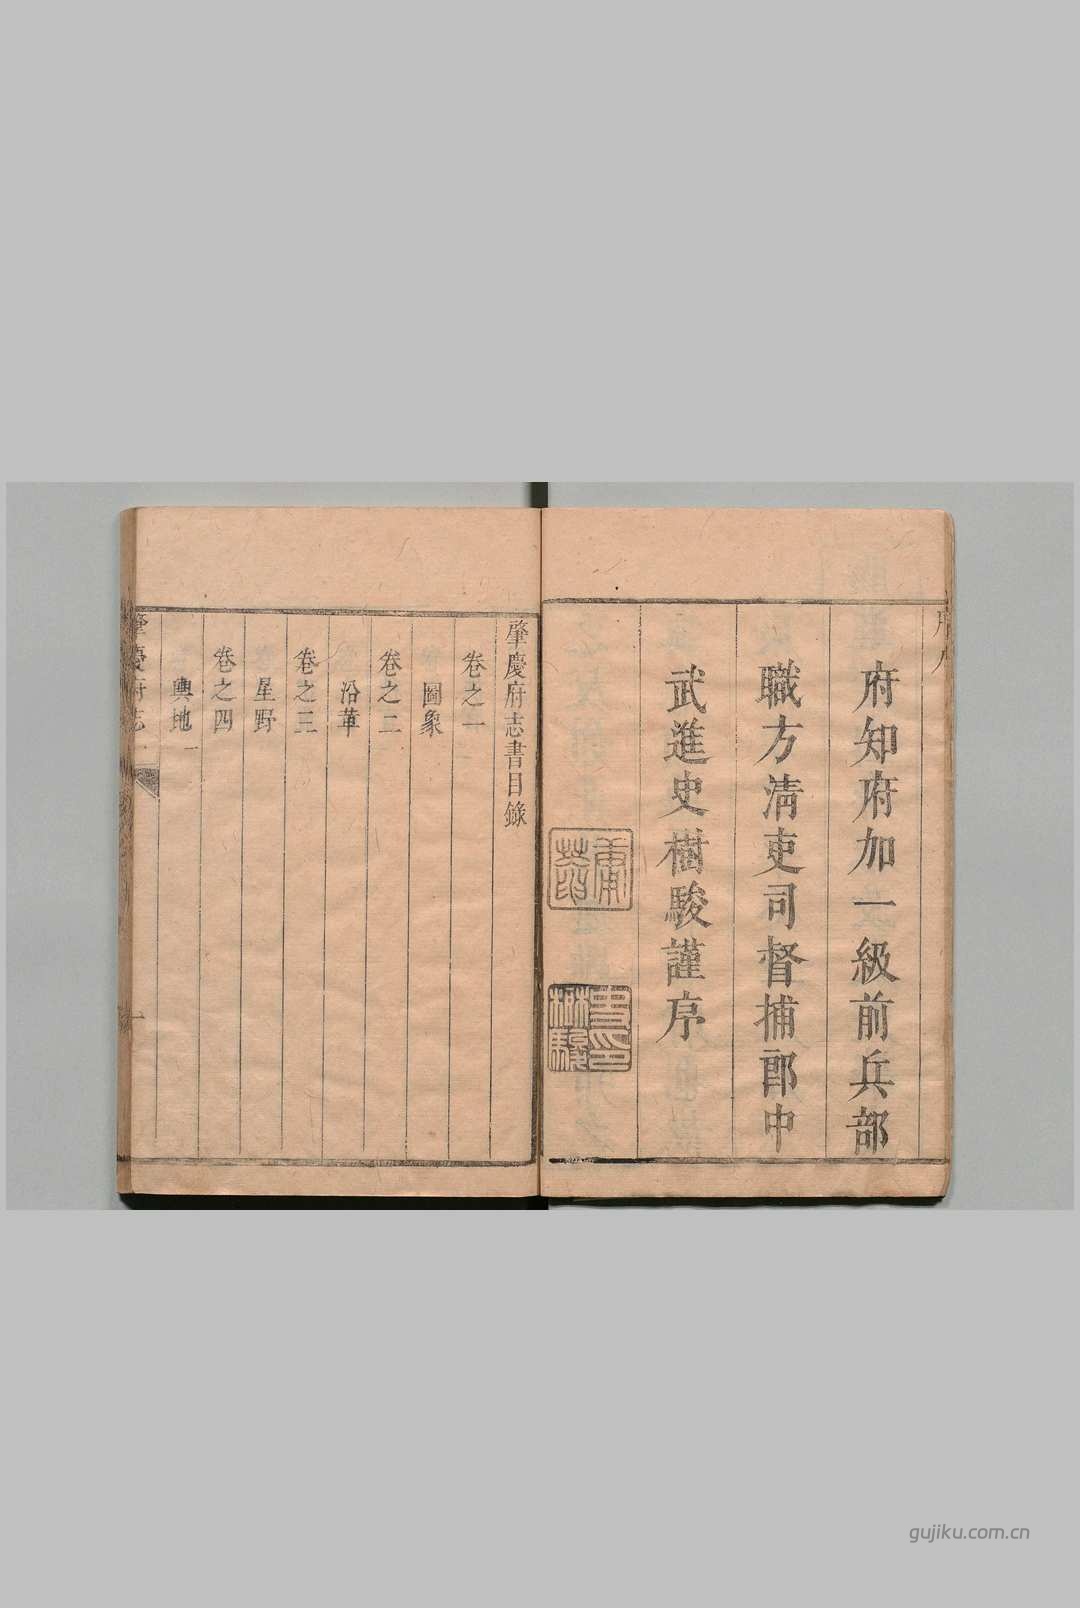 府知府加一級前兵部
職方清吏司督捕郎中
武進史樹駿謹序
肇慶府志書目錄
卷之一
圖象
卷之二
沿革
卷之三
星野
卷之四
輿地一
肇慶府志
一
gujiku.com.cn